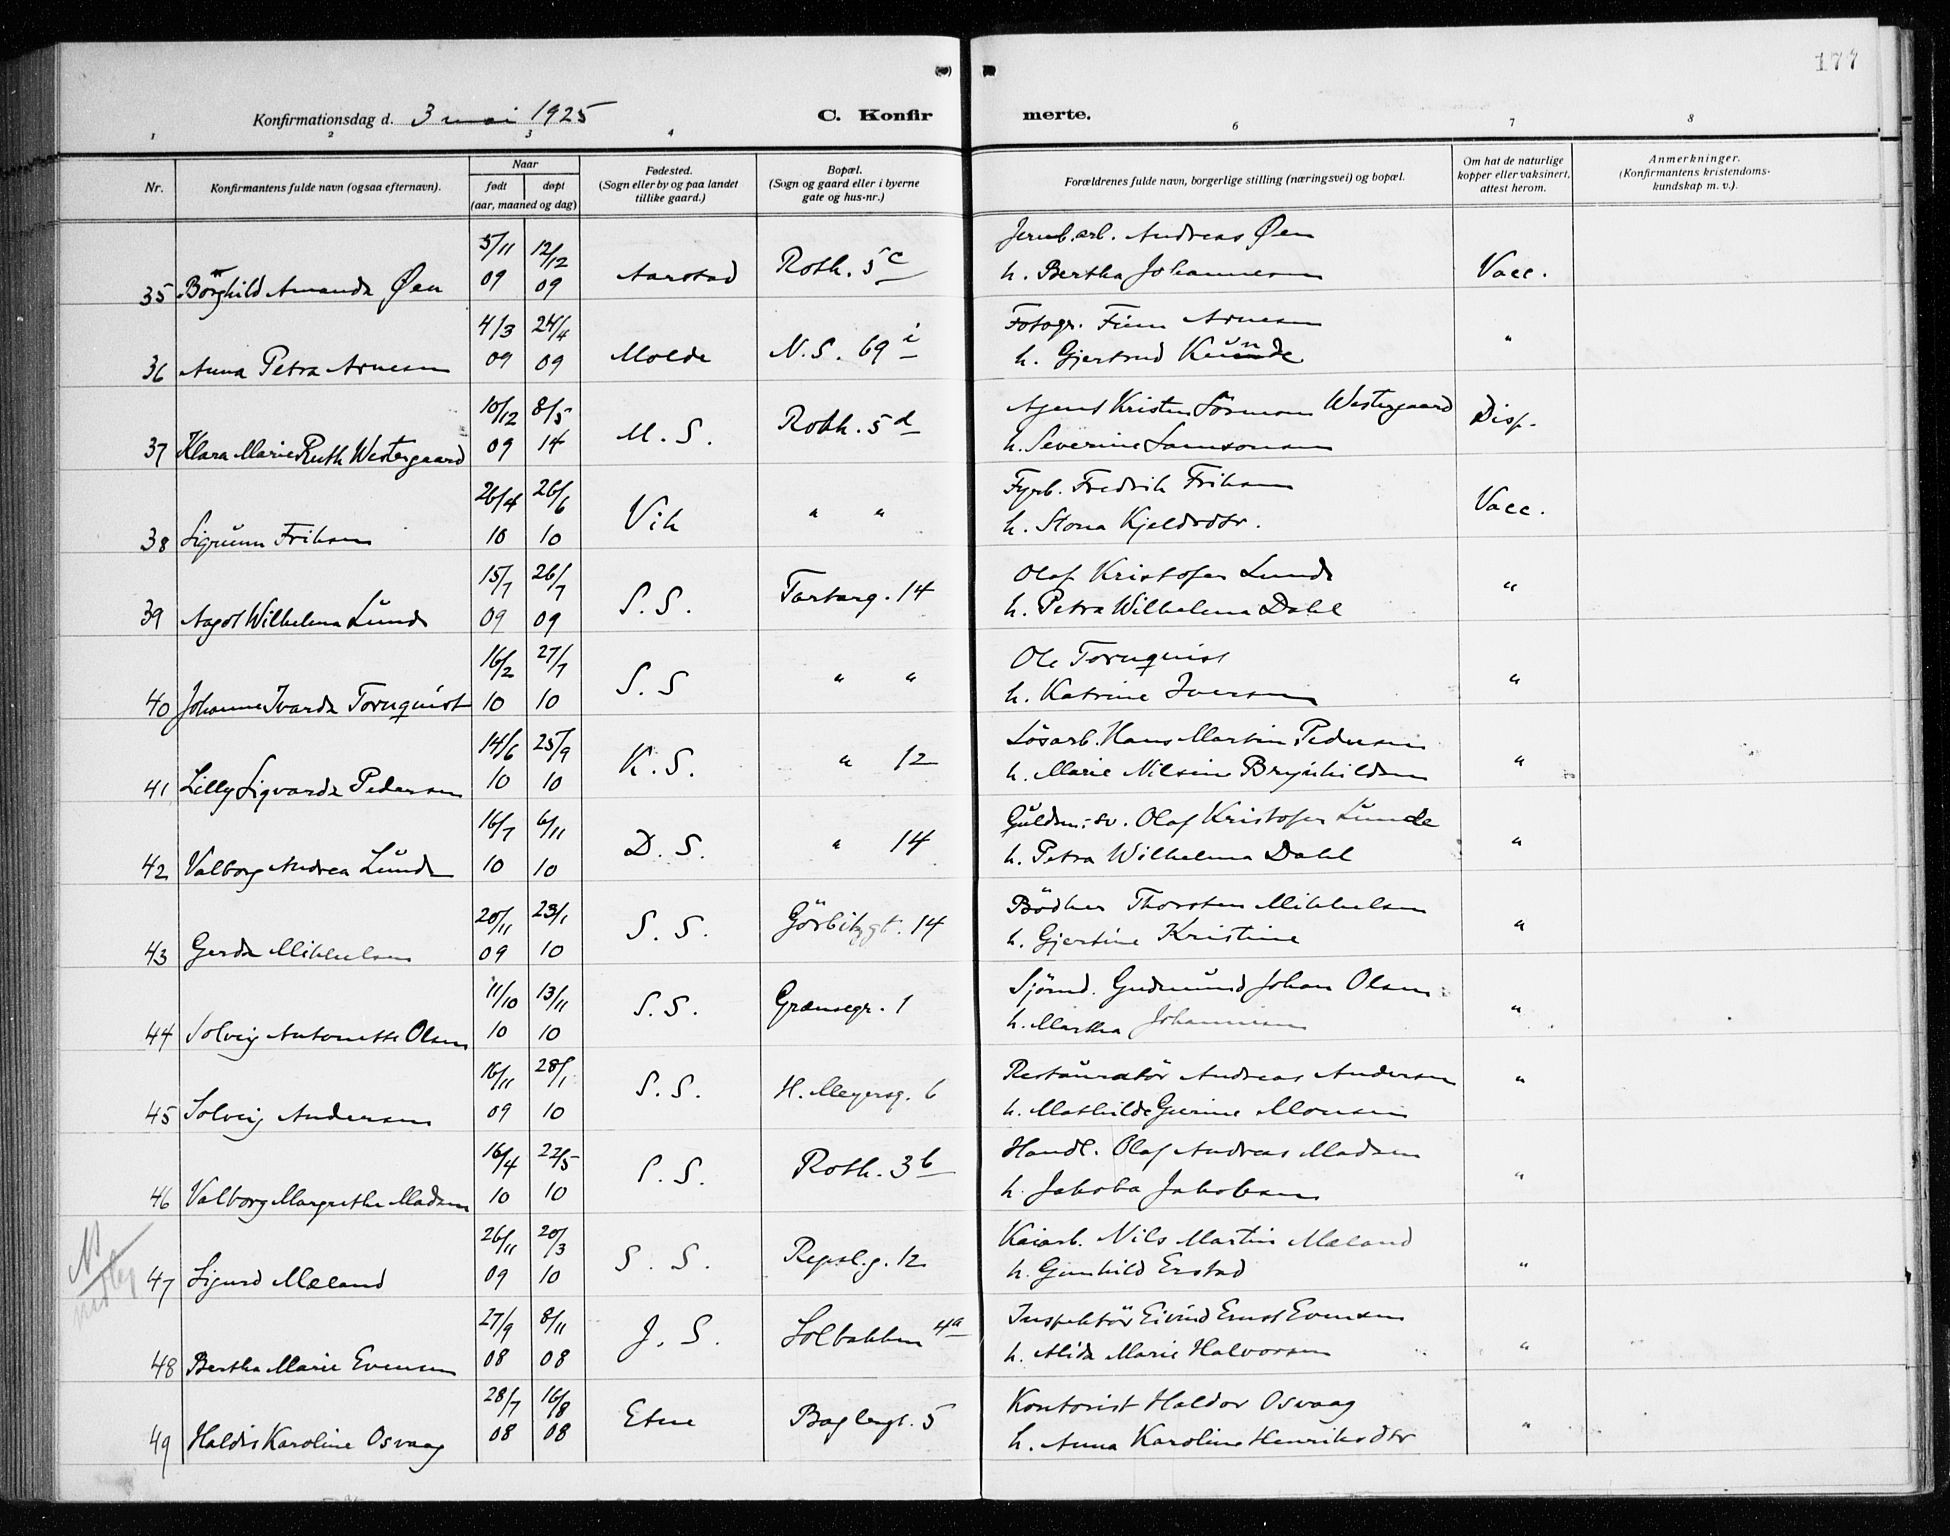 177
Konfirmationsdag d. 3 mai 1925 C. Konfirmerte.
1 2 3 4 6 7 8
Nr. Konfirmantens fulde navn (ogsaa efternavn). Naar født døpt (aar, maaned og dag) Fødested. (Sogn eller by og paa landet tillike gaard.) Bopæl. (Sogn og gaard eller i byerne gate og hus-nr.) Forældrenes fulde navn, borgerlige stilling (næringsvei) og bopæl. Om hat de naturlige kopper eller vaksinert, attest herom. Anmerkninger. (Konfirmantens kristendoms-kundskap m. v.).
35 Borghild Amanda Øen 5/11 09 12/12 09 Aarstad Roth. 5c Jernb.arb. Andreas Øen
h. Bertha Johannesen Vacc.
36 Anna Petra Arnesen 4/3 09 24/4 09 Molde N.S. 69 i Fotogr. Finn Arnesen
h. Gjertrud "
37 Klara Marie Ruth Westergaard 10/12 09 8/5 14 M. S. Roth. 5d Agent Kristen Sörensen Westergaard
h. Severine Samsonsen Disp.
38 Sigrunn Friksen 26/4 10 26/6 10 Vik " " Fyrb. Fredrik Friksen
h. Stona Kjeldsdtr. Vacc.
39 Aagot Wilhelma Lunde 15/7 09 26/7 09 S.S. Tartarg. 14 Olaf Kristofer Lunde
h. Petra Wilhelmina Dahl "
40 Johanne Ivarda Tornquist 16/2 10 27/7 10 S.S " " Ole Tornquist
h. Katrine Iversen "
41 Lilly Sigvarda Pedersen 14/6 10 25/9 10 K.S. " 12 Lösarb. Hans Martin Pedersen
h. Marie Nilsine Brynhildsen "
42 Valborg Andrea Lunde 16/7 10 6/11 10 D. S. " 14 Guldsm.-sv. Olaf Kristofer Lunde
h. Petra Wilhelmina Dahl "
43 Gerda Mikkelsen 20/11 09 23/1 10 S. S. Görbitzgt. 14 Bödker Thorsten Mikkelsen
h. Gjertine Kristine "
44 Solveig Antonette Olsen 11/10 10 13/11 10 S.S. Grænsegr. 1 Sjömd. Gudmund Johan Olsen
h. Martha Johannesen "
45 Solveig Andersen 16/11 09 28/1 10 S.S. H. Meyersg. 6 Restauratör Andreas Andersen
h. Mathilde Gurine Monsen "
46 Valborg Margrethe Madsen 16/4 10 22/5 10 S.S. Roth. 3b Handl. Olaf Andreas Madsen
h. Jakoba Jakobsen "
47 Sigurd Mæland 26/11 09 20/3 10 S. S. Repsl.g. 12 Kaiarb. Nils Martin Mæland
h. Gunhild Erstad "
48 Bertha Marie Evensen 27/9 08 8/11 08 J. S. Solbakken 4a Inspektör Eivind Ernst Evensen
h. Alida Marie Halvorsen "
49 Haldis Karoline Osvaag 28/7 08 16/8 08 Etne Baglergt. 5 Kontorist Haldor Osvaag
h. Anna Karoline Henriksdtr "